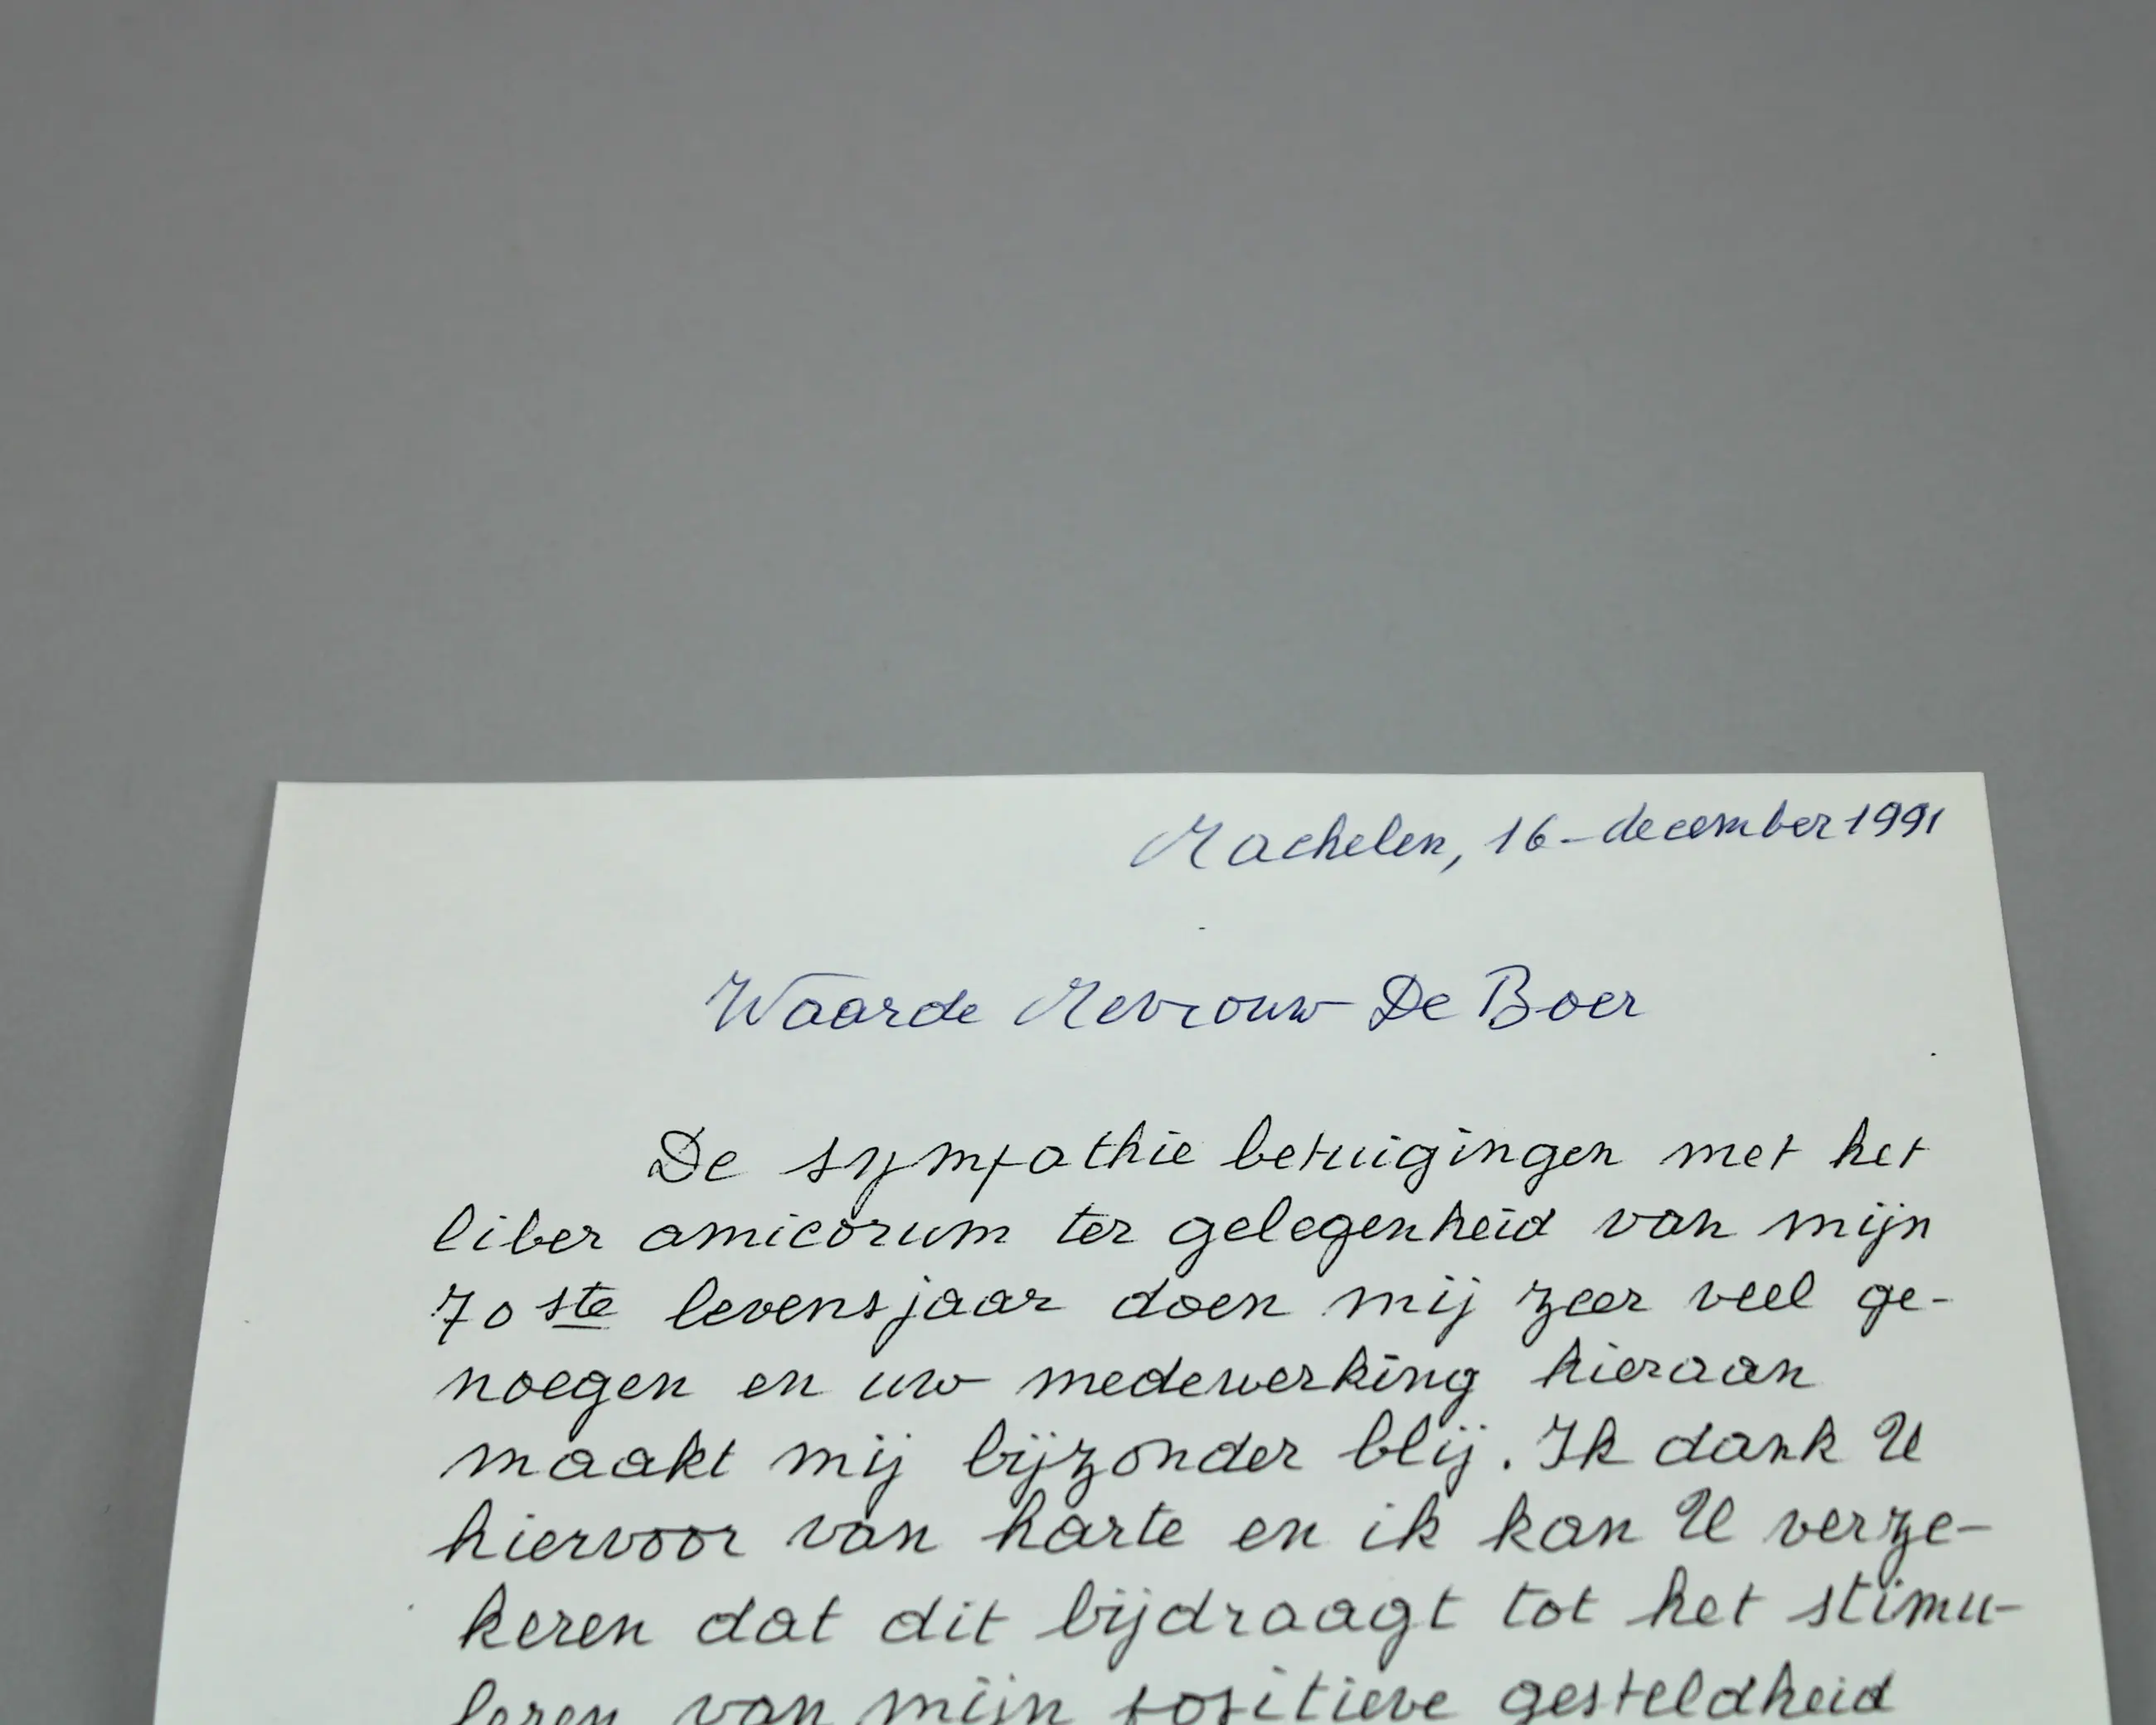 Machelen, 16-december 1991
Waarde Mevrouw De Boer
De sympathie betuigingen met het
liber amicorum ter gelegenheid van mijn
70ste levensjaar doen mij zeer veel ge-
noegen en uw medewerking hieraan
maakt mij bijzonder blij. Ik dank U
hiervoor van harte en ik kan U verze-
keren dat dit bijdraagt tot het stimu-
leren van mijn positieve gesteldheid